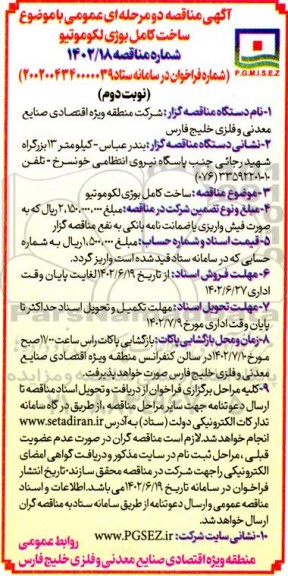 آگهی مناقصه دو مرحله ای عمومی با موضوع
ساخت کامل بوژی لکوموتیو
شماره مناقصه ۱۴۰۲/۱۸
P.G.M.I.S.E.Z
(شماره فراخوان در سامانه ستاد ۲۰۰۲۰۰۴۳۴۰۰۰۰۰۳۹)
(نوبت دوم)
۱-نام دستگاه مناقصه گزار: شرکت منطقه ویژه اقتصادی صنایع
معدنی و فلزی خلیج فارس
۲-نشانی دستگاه مناقصه گزار: بندر عباس-کیلومتر ۱۳ بزرگراه
شهید رجائی جنب پاسگاه نیروی انتظامی خونسرخ - تلفن
۳-موضوع مناقصه: ساخت کامل بوژی لکوموتیو
۴-مبلغ و نوع تضمین شرکت در مناقصه: مبلغ ۲،۱۵۰،۰۰۰،۰۰۰ ریال که به
صورت فیش واریزی یا ضمانت نامه بانکی به نفع مناقصه گزار
۵-قیمت اسناد و شماره حساب: مبلغ ۱،۵۰۰،۰۰۰ ریال به شماره
حسابی که در سامانه ستاد قید شده است واریز گردد.
۶-مهلت فروش اسناد: از تاریخ ۱۴۰۲/۶/۱۹ لغایت پایان وقت
اداری ۱۴۰۲/۶/۲۷
۷-مهلت تحویل اسناد: مهلت تکمیل و تحویل اسناد حداکثر تا
پایان وقت اداری مورخ ۱۴۰۲/۷/۹
۸-زمان و محل بازگشایی پاکات: بازگشایی پاکات راس ساعت ۱۰:۰۰ صبح
مورخ ۱۴۰۲/۷/۱۰ در سالن کنفرانس منطقه ویژه اقتصادی صنایع
معدنی و فلزی خلیج فارس صورت خواهد پذیرفت.
۹-کلیه مراحل برگزاری فراخوان از دریافت و تحویل اسناد مناقصه تا
ارسال دعوتنامه جهت سایر مراحل مناقصه، از طریق درگاه سامانه
تدارکات الکترونیکی دولت (ستاد) به آدرس www.setadiran.ir
انجام خواهد شد. لازم است مناقصه گران در صورت عدم عضویت
قبلی، مراحل ثبت نام در سایت مذکور و دریافت گواهی امضای
الکترونیکی را جهت شرکت در مناقصه محقق سازند- تاریخ انتشار
فراخوان در سامانه تاریخ ۱۴۰۲/۶/۱۹ می باشد. اطلاعات و اسناد
مناقصه عمومی و ارسال دعوتنامه از طریق سامانه ستاد به مناقصه گران
ارسال خواهد شد.
۱۰-نشانی سایت شرکت: www.PGSEZ.ir
روابط عمومی
منطقه ویژه اقتصادی صنایع معدنی و فلزی خلیج فارس